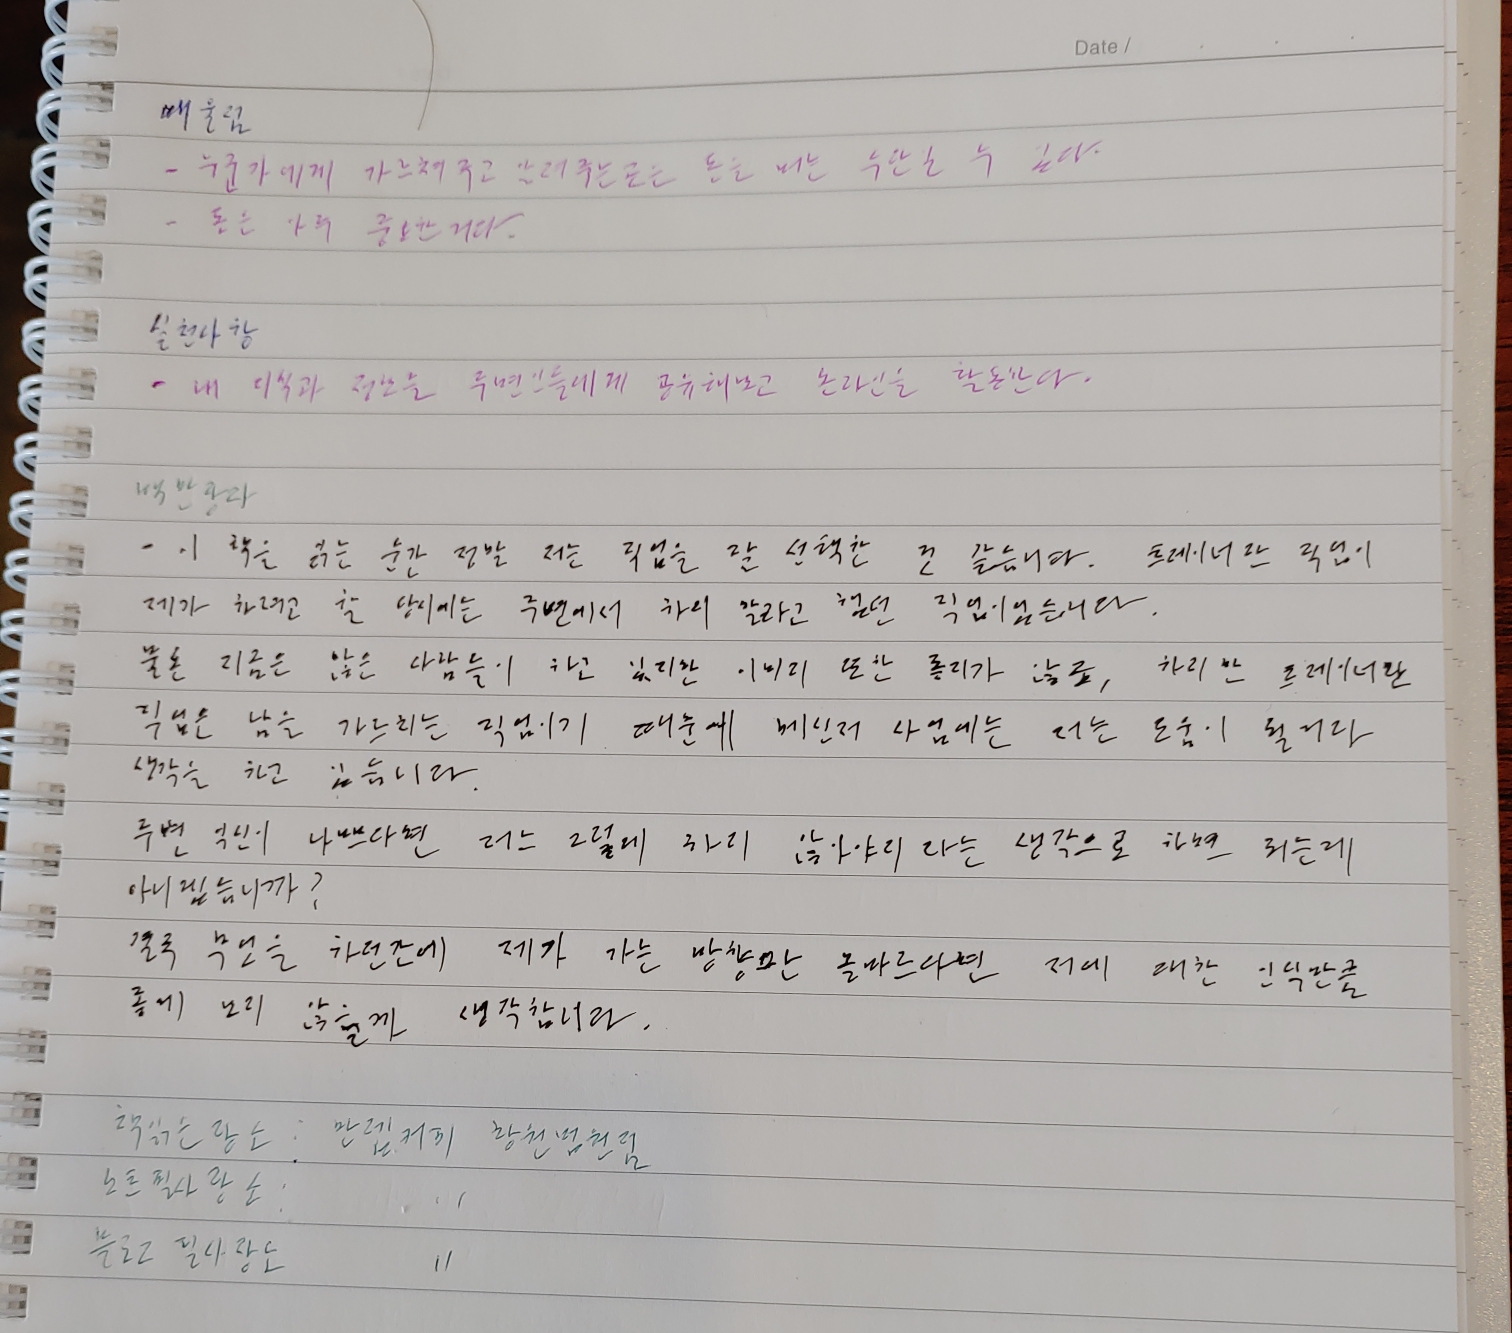 Date /
배울점
- 누군가에게 가르쳐주고 알려주는것은 돈을 버는 수단일 수 있다.
- 돈은 아주 중요한거다.
실천사항
- 내 지식과 정보를 주변인들에게 공유해보고 온라인을 활동한다.
백만송다
- 이 책을 읽는 순간 정말 저는 직업을 잘 선택한 것 같습니다. 트레이너란 직업이
제가 하려고 할 당시에는 주변에서 하지 말라고 했던 직업이었습니다.
물론 지금은 많은 사람들이 하고 있지만 이미지 또한 좋지가 않죠, 하지만 트레이너란
직업은 남을 가르치는 직업이기 때문에 메신저 사업에는 저는 도움이 될거라
생각을 하고 있습니다.
주변 인식이 나쁘다면 저는 그렇게 하지 않아야지 라는 생각으로 하면 되는게
아니겠습니까?
결국 무엇을 하던간에 제가 가는 방향만 올바르다면 저에 대한 인식만큼
좋게 보지 않을까 생각합니다.
책읽은장소 : 만렙커피 창원법원점
노트필사장소 : 〃
블로그 필사장소 〃